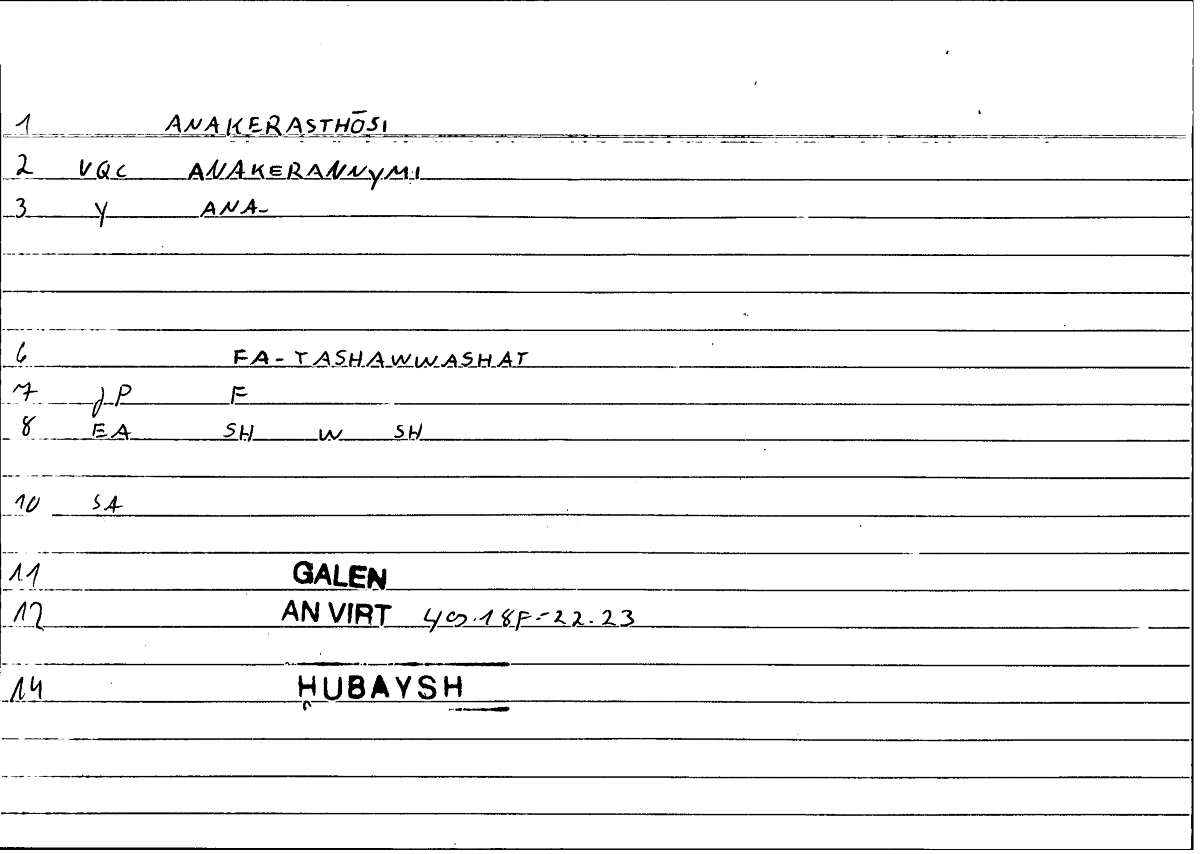 1 ANAKERASTHŌSI
2 VQC ANAKERANNYMI
3 Y ANA-
6 FA-TASHAWWASHAT
7 JP F
8 EA SH W SH
10 SA
11 GALEN
12 AN VIRT 40.18F=22.23
14 HUBAYSH